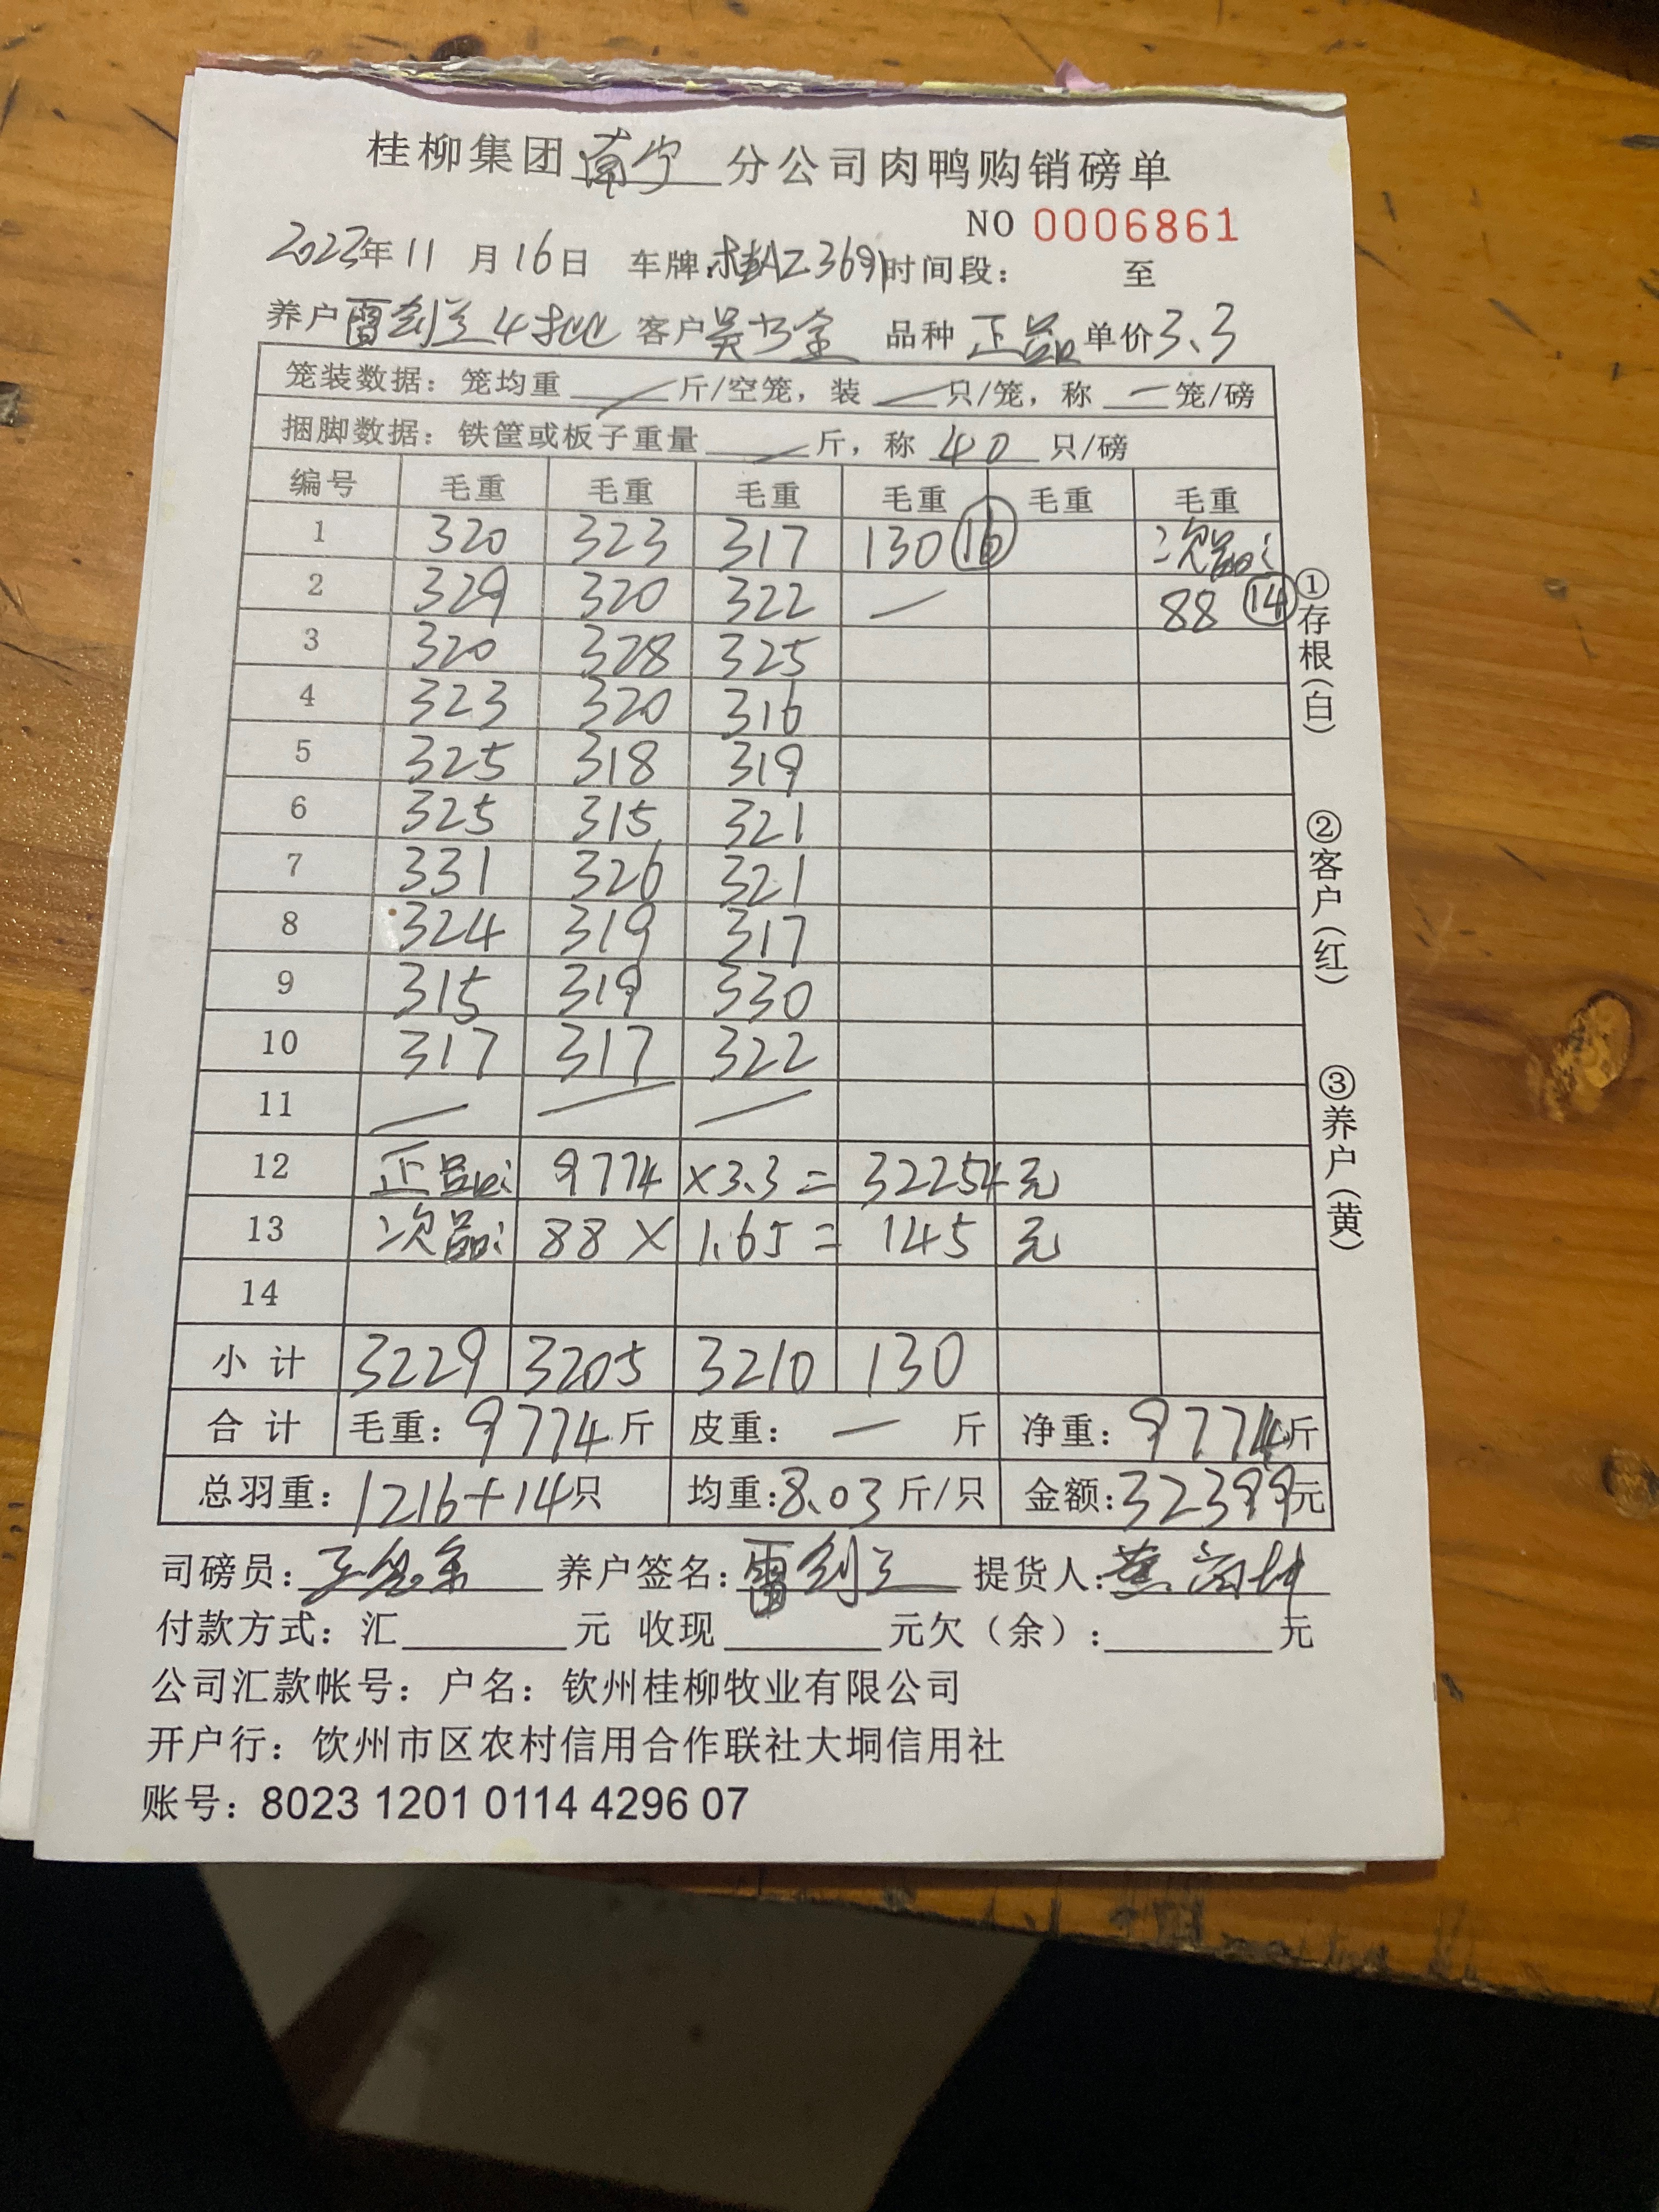 桂柳集团南宁分公司肉鸭购销磅单
NO 0006861
2023年11月16日 车牌:桂AZ3691时间段: 至
养户雷剑兰4批 客户吴书金 品种正品单价3.3
笼装数据: 笼均重 — 斤/空笼, 装 — 只/笼, 称 — 笼/磅
捆脚数据: 铁筐或板子重量 — 斤, 称 40 只/磅
编号 毛重 毛重 毛重 毛重 毛重 毛重
1 320 323 317 130 ⑯ 次品:
2 329 320 322 — 88 ⑭
3 320 328 325
4 323 320 316
5 325 318 319
6 325 315 321
7 331 326 321
8 324 319 317
9 315 319 330
10 317 317 322
11 — — —
12 正品: 9774 ×3.3 = 32254元
13 次品: 88 × 1.65 = 145 元
14
小计 3229 3205 3210 130
合计 毛重: 9774斤 皮重: — 斤 净重: 9774斤
总羽重: 1216+14只 均重:8.03斤/只 金额:32399元
司磅员: 养户签名:雷剑兰 提货人:
付款方式: 汇 元 收现 元欠(余): 元
公司汇款帐号: 户名: 钦州桂柳牧业有限公司
开户行: 饮州市区农村信用合作联社大垌信用社
账号: 8023 1201 0114 4296 07
①存根(白)
②客户(红)
③养户(黄)